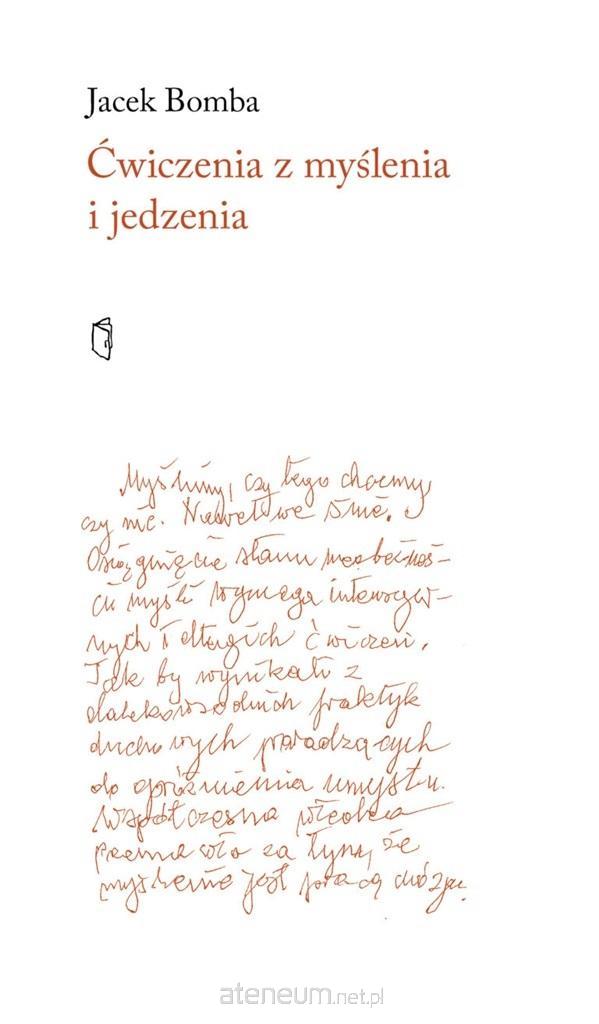 Jacek Bomba
Ćwiczenia z myślenia
i jedzenia
Myślimy, czy tego chcemy,
czy nie. Nawet we śnie.
Osiągnięcie stanu nieobecnoś-
ci myśli wymaga intensyw-
nych i długich ćwiczeń.
Tak by wynikało z
dalekowschodnich praktyk
duchowych prowadzących
do opróżnienia umysłu.
Współczesna wiedza
przemawia za tym, że
myślenie jest pracą mózgu.
ateneum.net.pl